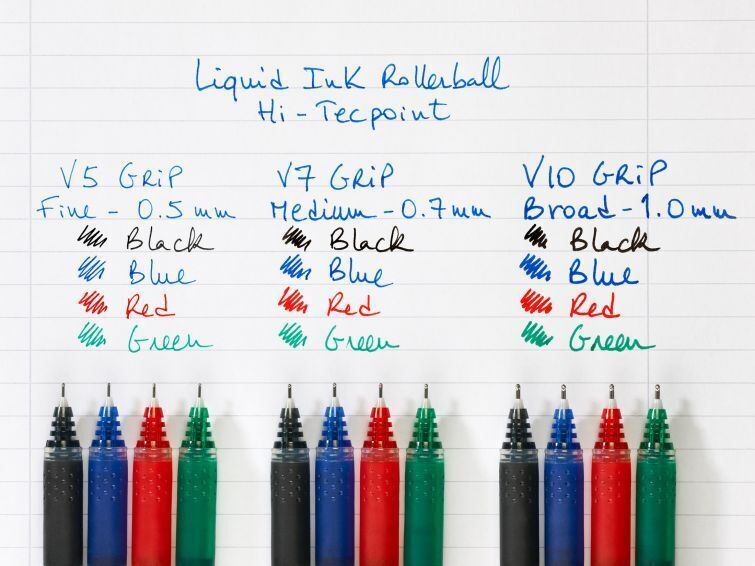 Liquid Ink Rollerball
Hi-Tecpoint
V5 GRiP
Fine - 0.5 mm
Black
Blue
Red
Green
V7 GRiP
Medium - 0.7 mm
Black
Blue
Red
Green
V10 GRiP
Broad - 1.0 mm
Black
Blue
Red
Green